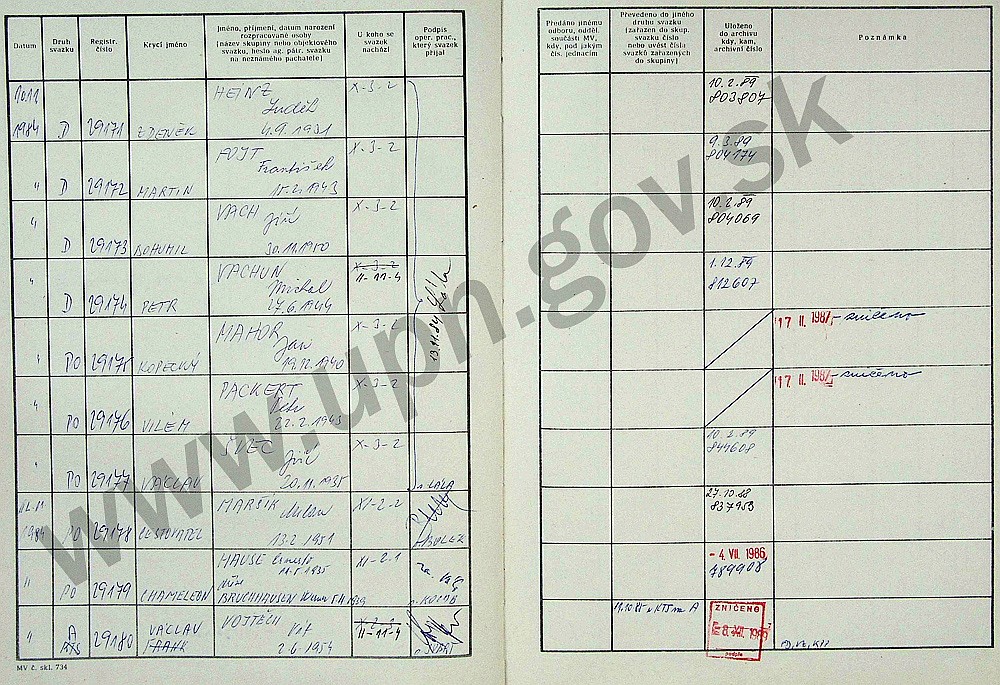 Datum
Druh svazku
Registr. číslo
Krycí jméno
Jméno, příjmení, datum narození
rozpracované osoby
(název skupiny nebo objektového
svazku, heslo ag. pátr. svazku
na neznámého pachatele)
U koho se
svazek
nachází
Podpis
oper. prac.,
který svazek
přijal
Předáno jinému
odboru, odděl.
součásti MV,
kdy, pod jakým
čís. jednacím
Převedeno do jiného
druhu svazku
(zařazen do skup.
svazku číslo
nebo uvést čísla
svazků zařazených
do skupiny)
Uloženo
do archivu
kdy, kam,
archivní číslo
Poznámka
1984 D 29171 ZDENĚK HEINZ Luděk 4.9.1931 X-3-2 10.2.89 803807
" D 29172 MARTIN FOJT František X-3-2 9.3.89 804174
" D 29173 BOHUMIL VACH Jiří 30.11.1950 X-3-2 10.2.89 804069
" D 29174 PETR VACHUN Michal 27.6.1944 X-3-2 II-11-4 1.12.89 812607
13.11.84
" PO 29175 KOPECKÝ MAHOR Jan 19.12.1940 X-3-2 17. II. 1987 - zničeno
" PO 29176 VILÉM PACKERT Petr 22.2.1943 X-3-2 17. II. 1987 - zničeno
" PO 29177 VÁCLAV ŠVEC Jiří 20.11.1935 X-3-2 10.2.89 844608
1984 PO 29178 CESTOVATEL MARŠÍK Milan 13.2.1951 XI-2-2 27.10.88 837953
" PO 29179 CHAMELEON HAUSE Ernesto 1935 XI-2-1 - 4. VII. 1986 789908
BRUCHHAUSEN
" A 29180 VÁCLAV VOJTĚCH Vít 2.6.1954 II-11-4 ZNIČENO
podpis
MV č. skl. 734
www.upn.gov.sk